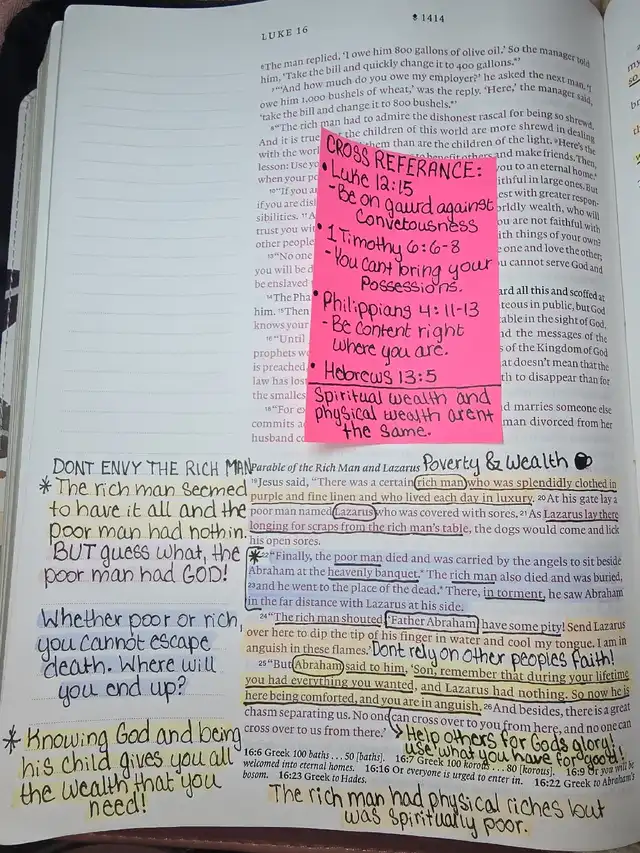 LUKE 16
1414
⁶The man replied, ‘I owe him 800 gallons of olive oil.’ So the manager told
him, ‘Take the bill and quickly change it to 400 gallons.’
⁷“‘And how much do you owe my employer?’ he asked the next man. ‘I
owe him 1,000 bushels of wheat,’ was the reply. ‘Here,’ the manager said,
‘take the bill and change it to 800 bushels.’
⁸“The rich man had to admire the dishonest rascal for being so shrewd.
And it is true the children of this world are more shrewd in dealing
with the them than are the children of the light. ⁹Here’s the
lesson: Use benefit others and make friends. Then,
when your you to an eternal home.
¹⁰“If you faithful in large ones. But
if you are dis with greater respon-
sibilities. ¹¹ worldly wealth, who will
trust you you are not faithful with
other people with things of your own?
¹³“No one one and love the other;
you will be cannot serve God and
be enslaved
¹⁴The Pha heard all this and scoffed at
him. ¹⁵Then righteous in public, but God
knows your in the sight of God.
¹⁶“Until and the messages of
prophets of the Kingdom of God
is preached, that doesn’t mean that the
law has lost to disappear than for
the smallest
¹⁸“For and marries someone else
commits man divorced from her
husband
CROSS REFERANCE:
• Luke 12:15
- Be on gaurd against
Convetousness
• 1 Timothy 6:6-8
- You cant bring your
Possessions.
• Philippians 4:11-13
- Be content right
where you are.
• Hebrews 13:5
Spiritual wealth and
physical wealth arent
the same.
DONT ENVY THE RICH MAN
* The rich man seemed
to have it all and the
poor man had nothin.
BUT guess what, the
poor man had GOD!
Whether poor or rich,
you cannot escape
death. Where will
you end up?
* Knowing God and being
his child gives you all
the wealth that you
need!
Parable of the Rich Man and Lazarus Poverty & Wealth
¹⁹Jesus said, “There was a certain rich man who was splendidly clothed in
purple and fine linen and who lived each day in luxury. ²⁰At his gate lay a
poor man named Lazarus who was covered with sores. ²¹As Lazarus lay there
longing for scraps from the rich man’s table, the dogs would come and lick
his open sores.
* ²²“Finally, the poor man died and was carried by the angels to sit beside
Abraham at the heavenly banquet.* The rich man also died and was buried,
²³and he went to the place of the dead.* There, in torment, he saw Abraham
in the far distance with Lazarus at his side.
²⁴“The rich man shouted, ‘Father Abraham, have some pity! Send Lazarus
over here to dip the tip of his finger in water and cool my tongue. I am in
anguish in these flames.’ Dont rely on other peoples faith!
²⁵“But Abraham said to him, ‘Son, remember that during your lifetime
you had everything you wanted, and Lazarus had nothing. So now he is
here being comforted, and you are in anguish. ²⁶And besides, there is a great
chasm separating us. No one can cross over to you from here, and no one can
cross over to us from there.’
Help others for Gods glory!
use what you have for good!
16:6 Greek 100 baths . . . 50 [baths]. 16:7 Greek 100 korous . . . 80 [korous]. 16:9 Or you will be
welcomed into eternal homes. 16:16 Or everyone is urged to enter in. 16:22 Greek to Abraham’s
bosom. 16:23 Greek to Hades.
The rich man had physical riches but
was spiritually poor.